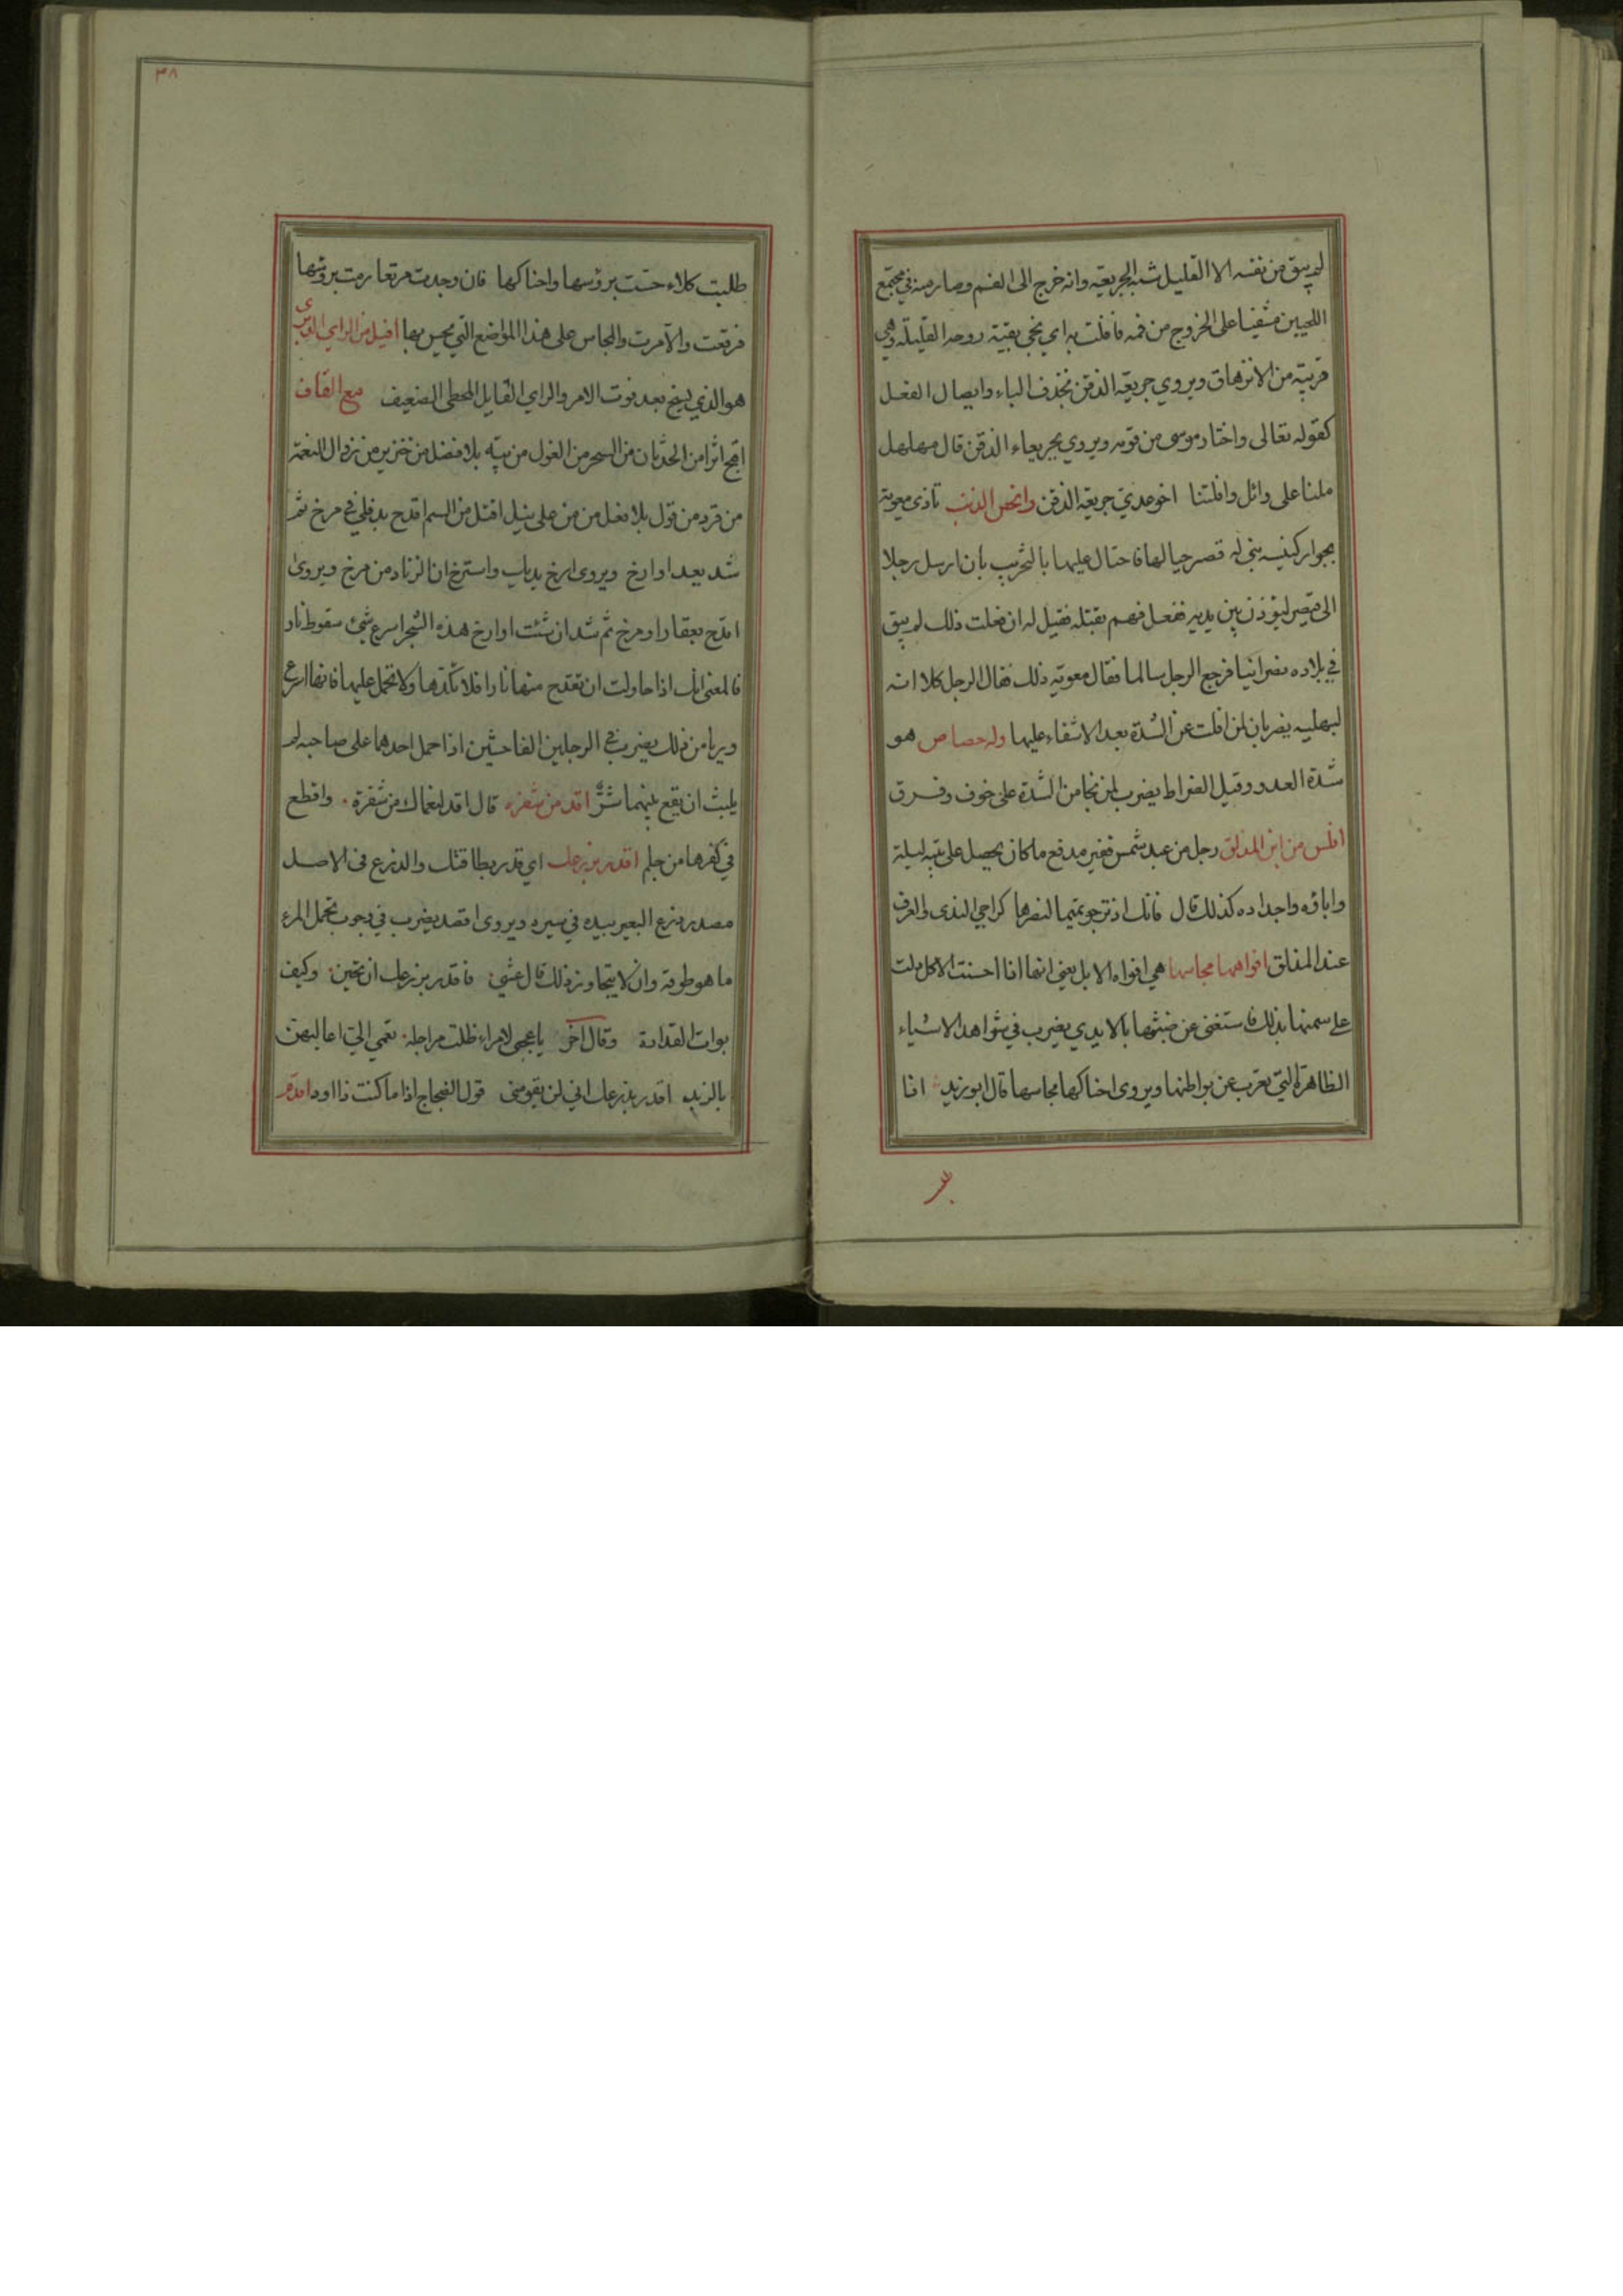 لم يبق من نفسه الا القليل شبه الجريعة وانه خرج الى الفم وصار منه في مجتمع
اللحيين مشفيا على الخروج من فمه فافلت به اي نجي بقية روحه القليلة وهي
قريبة من الازهاق ويروي جريعة الذقن بحذف الباء وايصال الفعل
كقوله تعالى واختار موسى من قومه ويروي بجريعاء الذقن قال مهلهل
ملنا على وائل وافلتنا اخو عدي جريعة الذقن وانحص الذنب تاذى معوية
بجوار كنيسة بني له قصر حيالها فاحتال عليها بالتخريب بان ارسل رجلا
الى قيصر ليؤذن بين يديه ففعل فهم بقتله فقيل له ان فعلت ذلك لم يبق
في بلاده نصرانيا فرجع الرجل سالما فقال معوية ذلك فقال الرجل كلا انه
لبهلبه يضربان لمن افلت عن الشدة بعد الاشفاء عليها وله حصاص هو
شدة العدو وقيل الضراط يضرب لمن نجا من الشدة على خوف وفرق
افلس من ابن المذلق رجل من عبد شمس فقير مدقع ما كان يحصل على بيتة ليلة
واباؤه واجداده كذلك قال فانك اذ ترجو تميما لنصرها كراجي الندى والعرف
عند المذلق افواهها مجاسها هي افواه الابل يعني انها اذا احسنت الاكل دلت
على سمنها بذلك فاستغنى عن ضبثها بالايدي يضرب في شواهد الاشياء
الظاهرة التي تعرب عن بواطنها ويروى احناكها مجاسها قال ابو زيد اذا
طلبت
٣٨
طلبت كلاء حتت برؤسها واحناكها فان وجدت مرتعا رمت برؤسها
فرتعت والا مرت والمجاس على هذا المواضع التي يجس بها افيل من الراي الدبري
هو الذي يسنح بعد فوت الامر والراي الفايل المخطي الضعيف مع القاف
اقبح اثرا من الحدثان من السحر من الغول من تيه بلا فضل من خنزير من زوال النعمة
من قرد من قول بلا فعل من من على نيل اقتل من السم اقدح بدفلى في مرخ ثم
شد بعد او ارخ ويروى ارخ يديك واسترخ ان الزناد من مرخ ويروى
اقدح بعفار او مرخ ثم شد ان شئت او ارخ هذه الشجر اسرع شئ سقوط نار
فالمعنى انك اذا حاولت ان تقتدح منها نارا فلا تكدها ولا تحمل عليها فانها اسرع
وريا من ذلك يضرب في الرجلين الفاحشين اذا حمل احدهما على صاحبه لم
يلبث ان يقع بينهما شر اقد من شفرة قال اقد لنعماك من شفرة واقطع
في كفرها من جلم اقدر بذرعك اي قدر بطاقتك والذرع في الاصل
مصدر ذرع البعير بيده في سيره ويروى اقصد يضرب في وجوب تحمل المرء
ما هو طوقه وان لا يتجاوز ذلك قال عشى فاقدر بذرعك ان تحين وكيف
بوات القدامة وقال آخر يا عجبى لامراء ظلت مراجله تهمي الي اعاليهن
بالزبد اقدر بذرعك اني لن يقومني قول الضجاج اذا ما كنت ذا اود اقدم